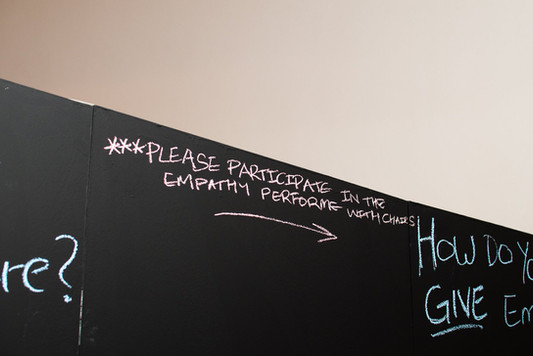 ***PLEASE PARTICIPATE IN THE
EMPATHY PERFORME WITH CHAIRS
re?
HOW DO YO
GIVE Em